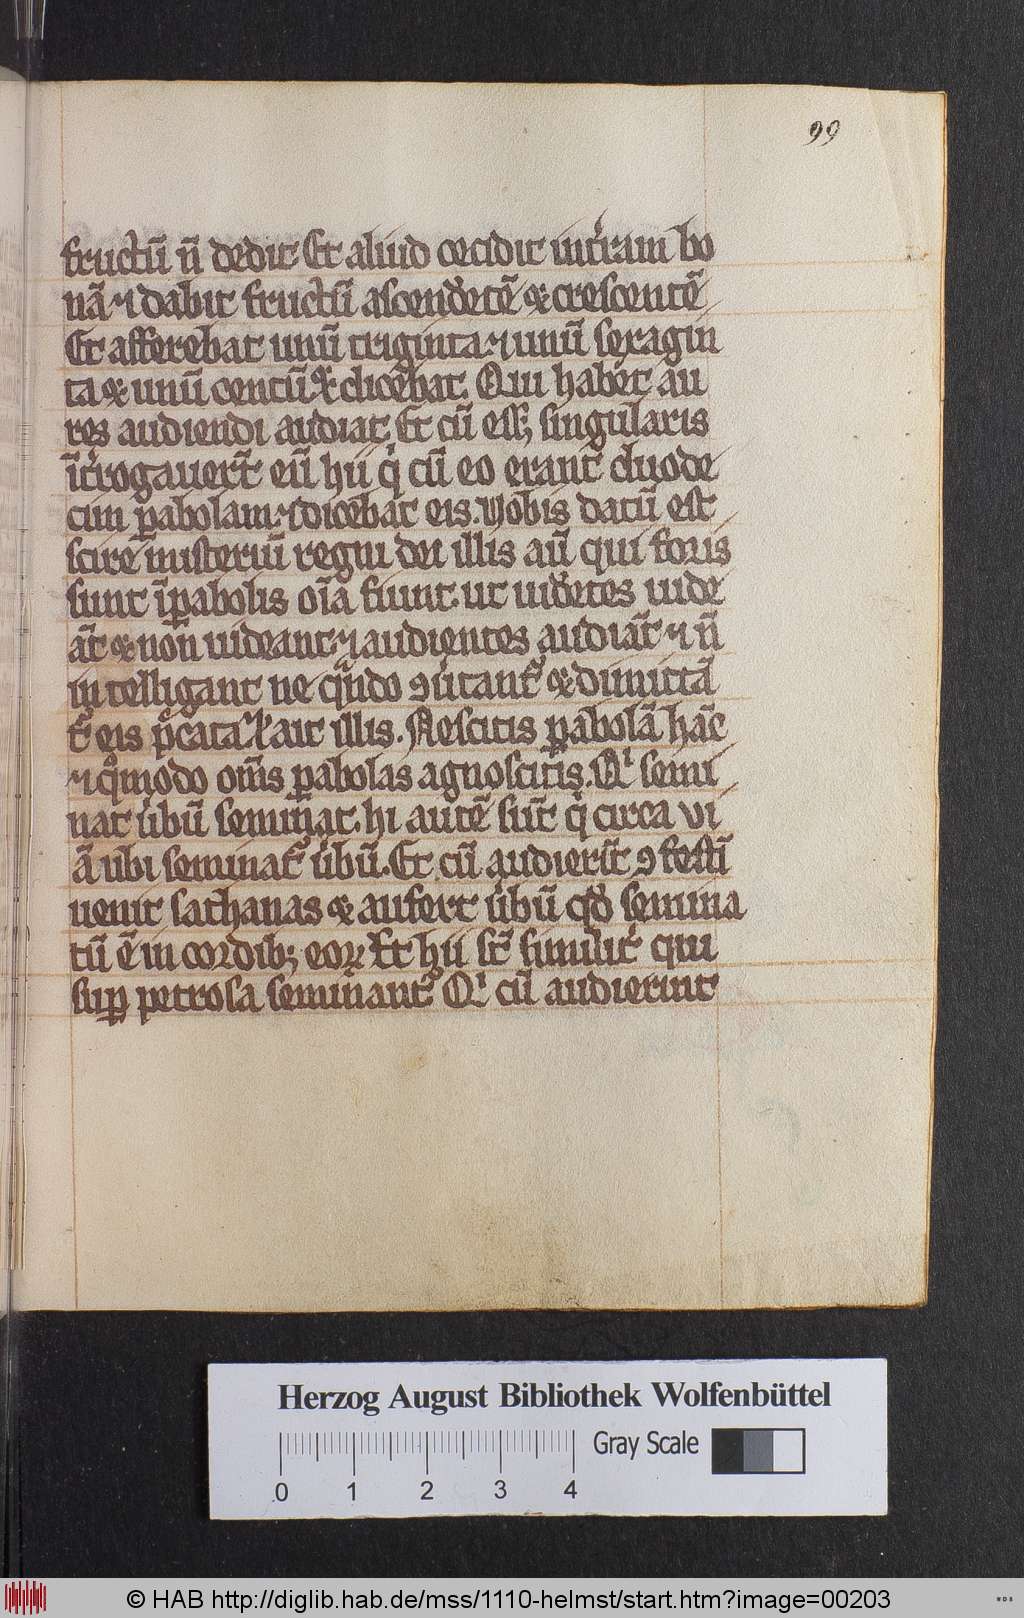 99
fructū n̄ dedit Et aliud cecidit int̓ram bo
nā ⁊ dabit fructū ascendētē & crescentē
Et afferebat unū triginta ⁊ unū sexagin
ta & unū centū & dicebat. Qui habet au
res audiendi audiat Et cū ess; singularis
īt̓rogauer̄t eū hii q̇ cū eo erant duode
cim ꝑabolam. ⁊ dicebat eis. Vobis datū est
scire misteriū regni dei illis aū qui foris
sunt īꝑabolis oīa fiunt. ut uid̓etes uide
āt & non uideant ⁊ audientes audiāt ⁊ n̄
intelligant ne qn̄do ꝯu̓tant᷑ & dimittā
t᷑ eis pc̄cata. & ait illis. Nescitis ꝑabolā hāc
⁊ qͦmodo om̄s ꝑabolas agnoscitis. Qͥ semi
nat u̓bū seminat. hi autē sūt q̇ circa vi
ā ubi seminat᷑ u̓bū. Et cū audier̄t ꝯfestī
uenit sathanas & aufert u̓bū qd̄ semina
tū ē in cordib; eoꝝ Et hii st̄ similit̓ qui
suꝑ petrosa seminant᷑ Qͥ cū audierint
Herzog August Bibliothek Wolfenbüttel
Gray Scale
0 1 2 3 4
© HAB http://diglib.hab.de/mss/1110-helmst/start.htm?image=00203